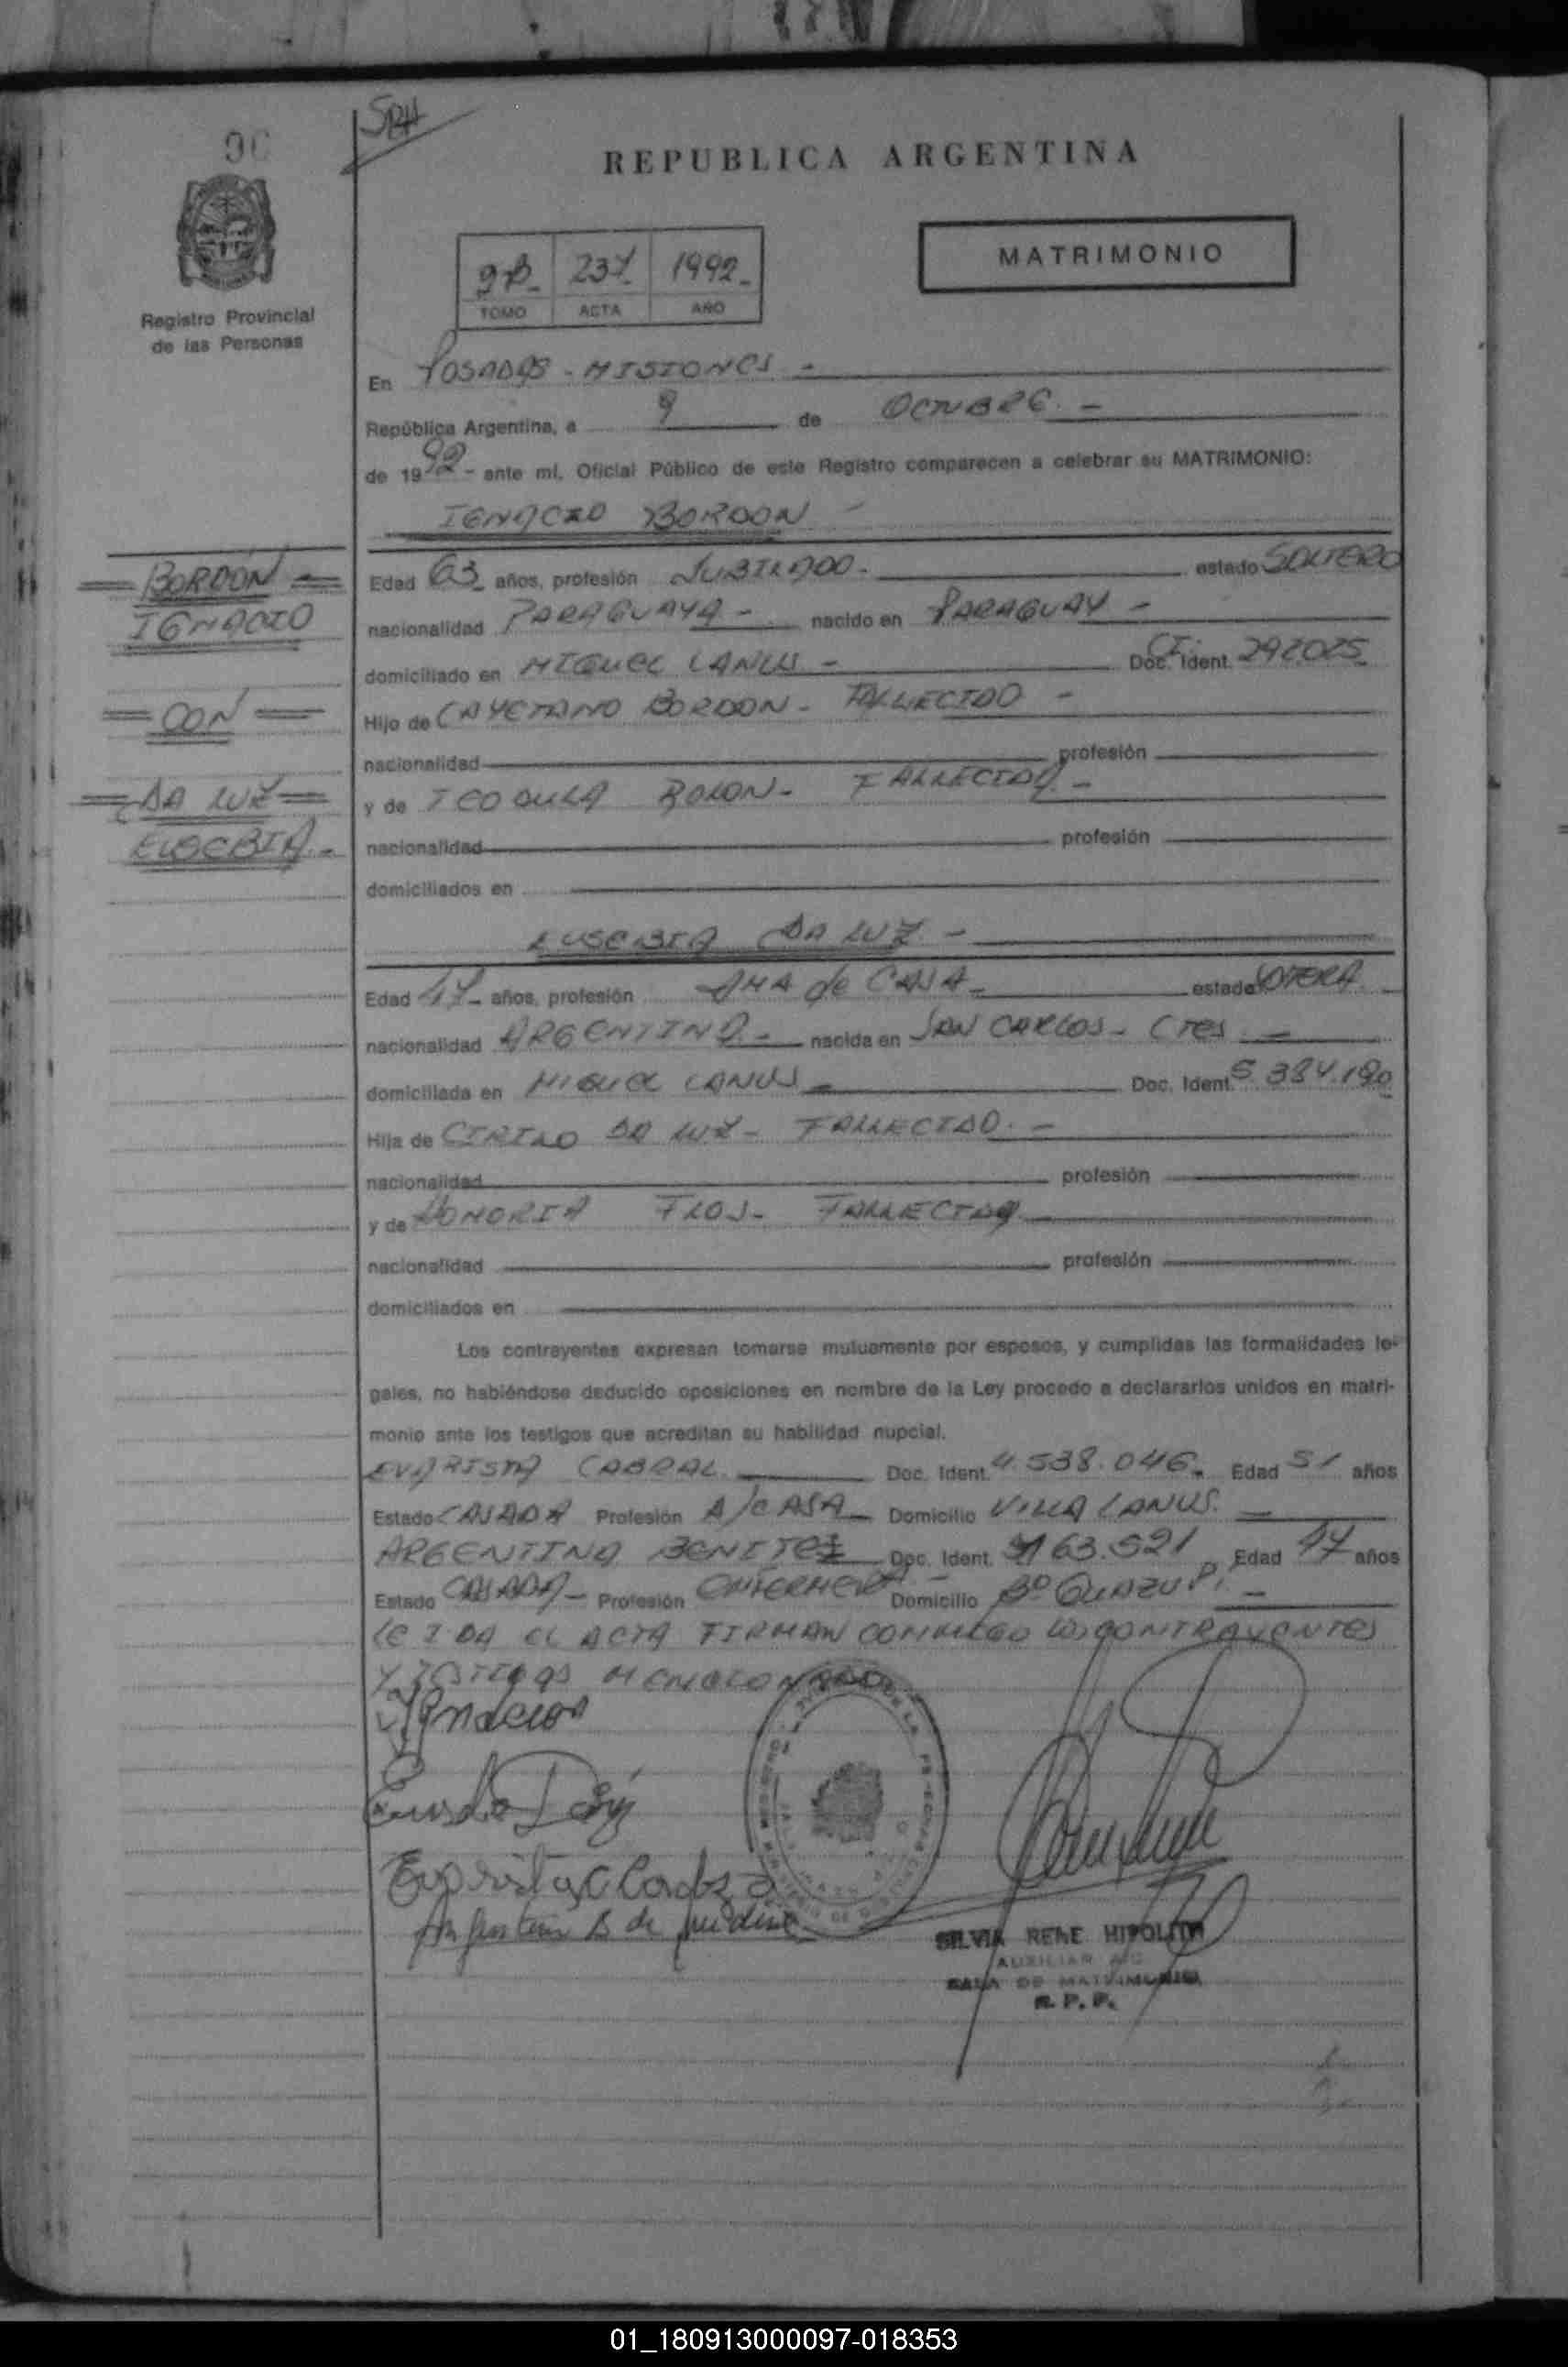 90
SRH
REPUBLICA ARGENTINA
MATRIMONIO
237 1992
TOMO ACTA AÑO
Registro Provincial
de las Personas
En POSADAS - MISIONES -
República Argentina, a 9 de OCTUBRE. -
de 1992 - ante mí, Oficial Público de este Registro comparecen a celebrar su MATRIMONIO:
IGNACIO BORDON -
BORDÓN
IGNACIO
CON
DA LUZ
EUSEBIA. -
Edad 63 años, profesión JUBILADO. - estado SOLTERO
nacionalidad PARAGUAYA - nacido en PARAGUAY -
domiciliado en MIGUEL LANUS - Doc. Ident. CI: 292025
Hijo de CAYETANO BORDON - FALLECIDO -
nacionalidad profesión
y de TEODULA BOLON - FALLECIDA -
nacionalidad profesión
domiciliados en
EUSEBIA DA LUZ -
Edad 47 - años, profesión AMA de CASA - estado SOLTERA
nacionalidad ARGENTINA - nacida en SAN CARLOS - CTES -
domiciliada en MIGUEL LANUS - Doc. Ident. 5.384.190
Hija de CIRILO DA LUZ - FALLECIDO. -
nacionalidad profesión
y de HONORIA FLOS - FALLECIDA
nacionalidad profesión
domiciliados en
Los contrayentes expresan tomarse mutuamente por esposos, y cumplidas las formalidades le-
gales, no habiéndose deducido oposiciones en nombre de la Ley procedo a declararlos unidos en matri-
monio ante los testigos que acreditan su habilidad nupcial.
EVARISTA CABRAL Doc. Ident. 4.538.046. Edad 51 años
Estado CASADA Profesión A/CASA Domicilio VILLA LANUS.
ARGENTINA BENITEZ Doc. Ident. 163.521 Edad 47 años
Estado CASADA - Profesión ENFERMERA - Domicilio Bº GUAZUPI. -
LEIDA EL ACTA FIRMAN CONMIGO LOS CONTRAYENTES
Y TESTIGOS MENCIONADOS
Ignacio
SILVIA RENE HIPOLITO
AUXILIAR A/C
SALA DE MATRIMONIO
R. P. P.
01_180913000097-018353